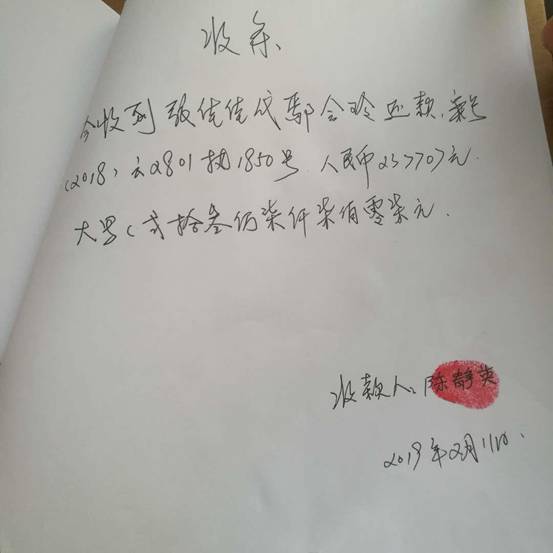 收条
今收到张佳佳代鄢会玲还款,案号
(2018)云2801执1850号 人民币237707元.
大写(贰拾叁万柒仟柒佰零柒元.
收款人:陈静英
2019年2月11日.